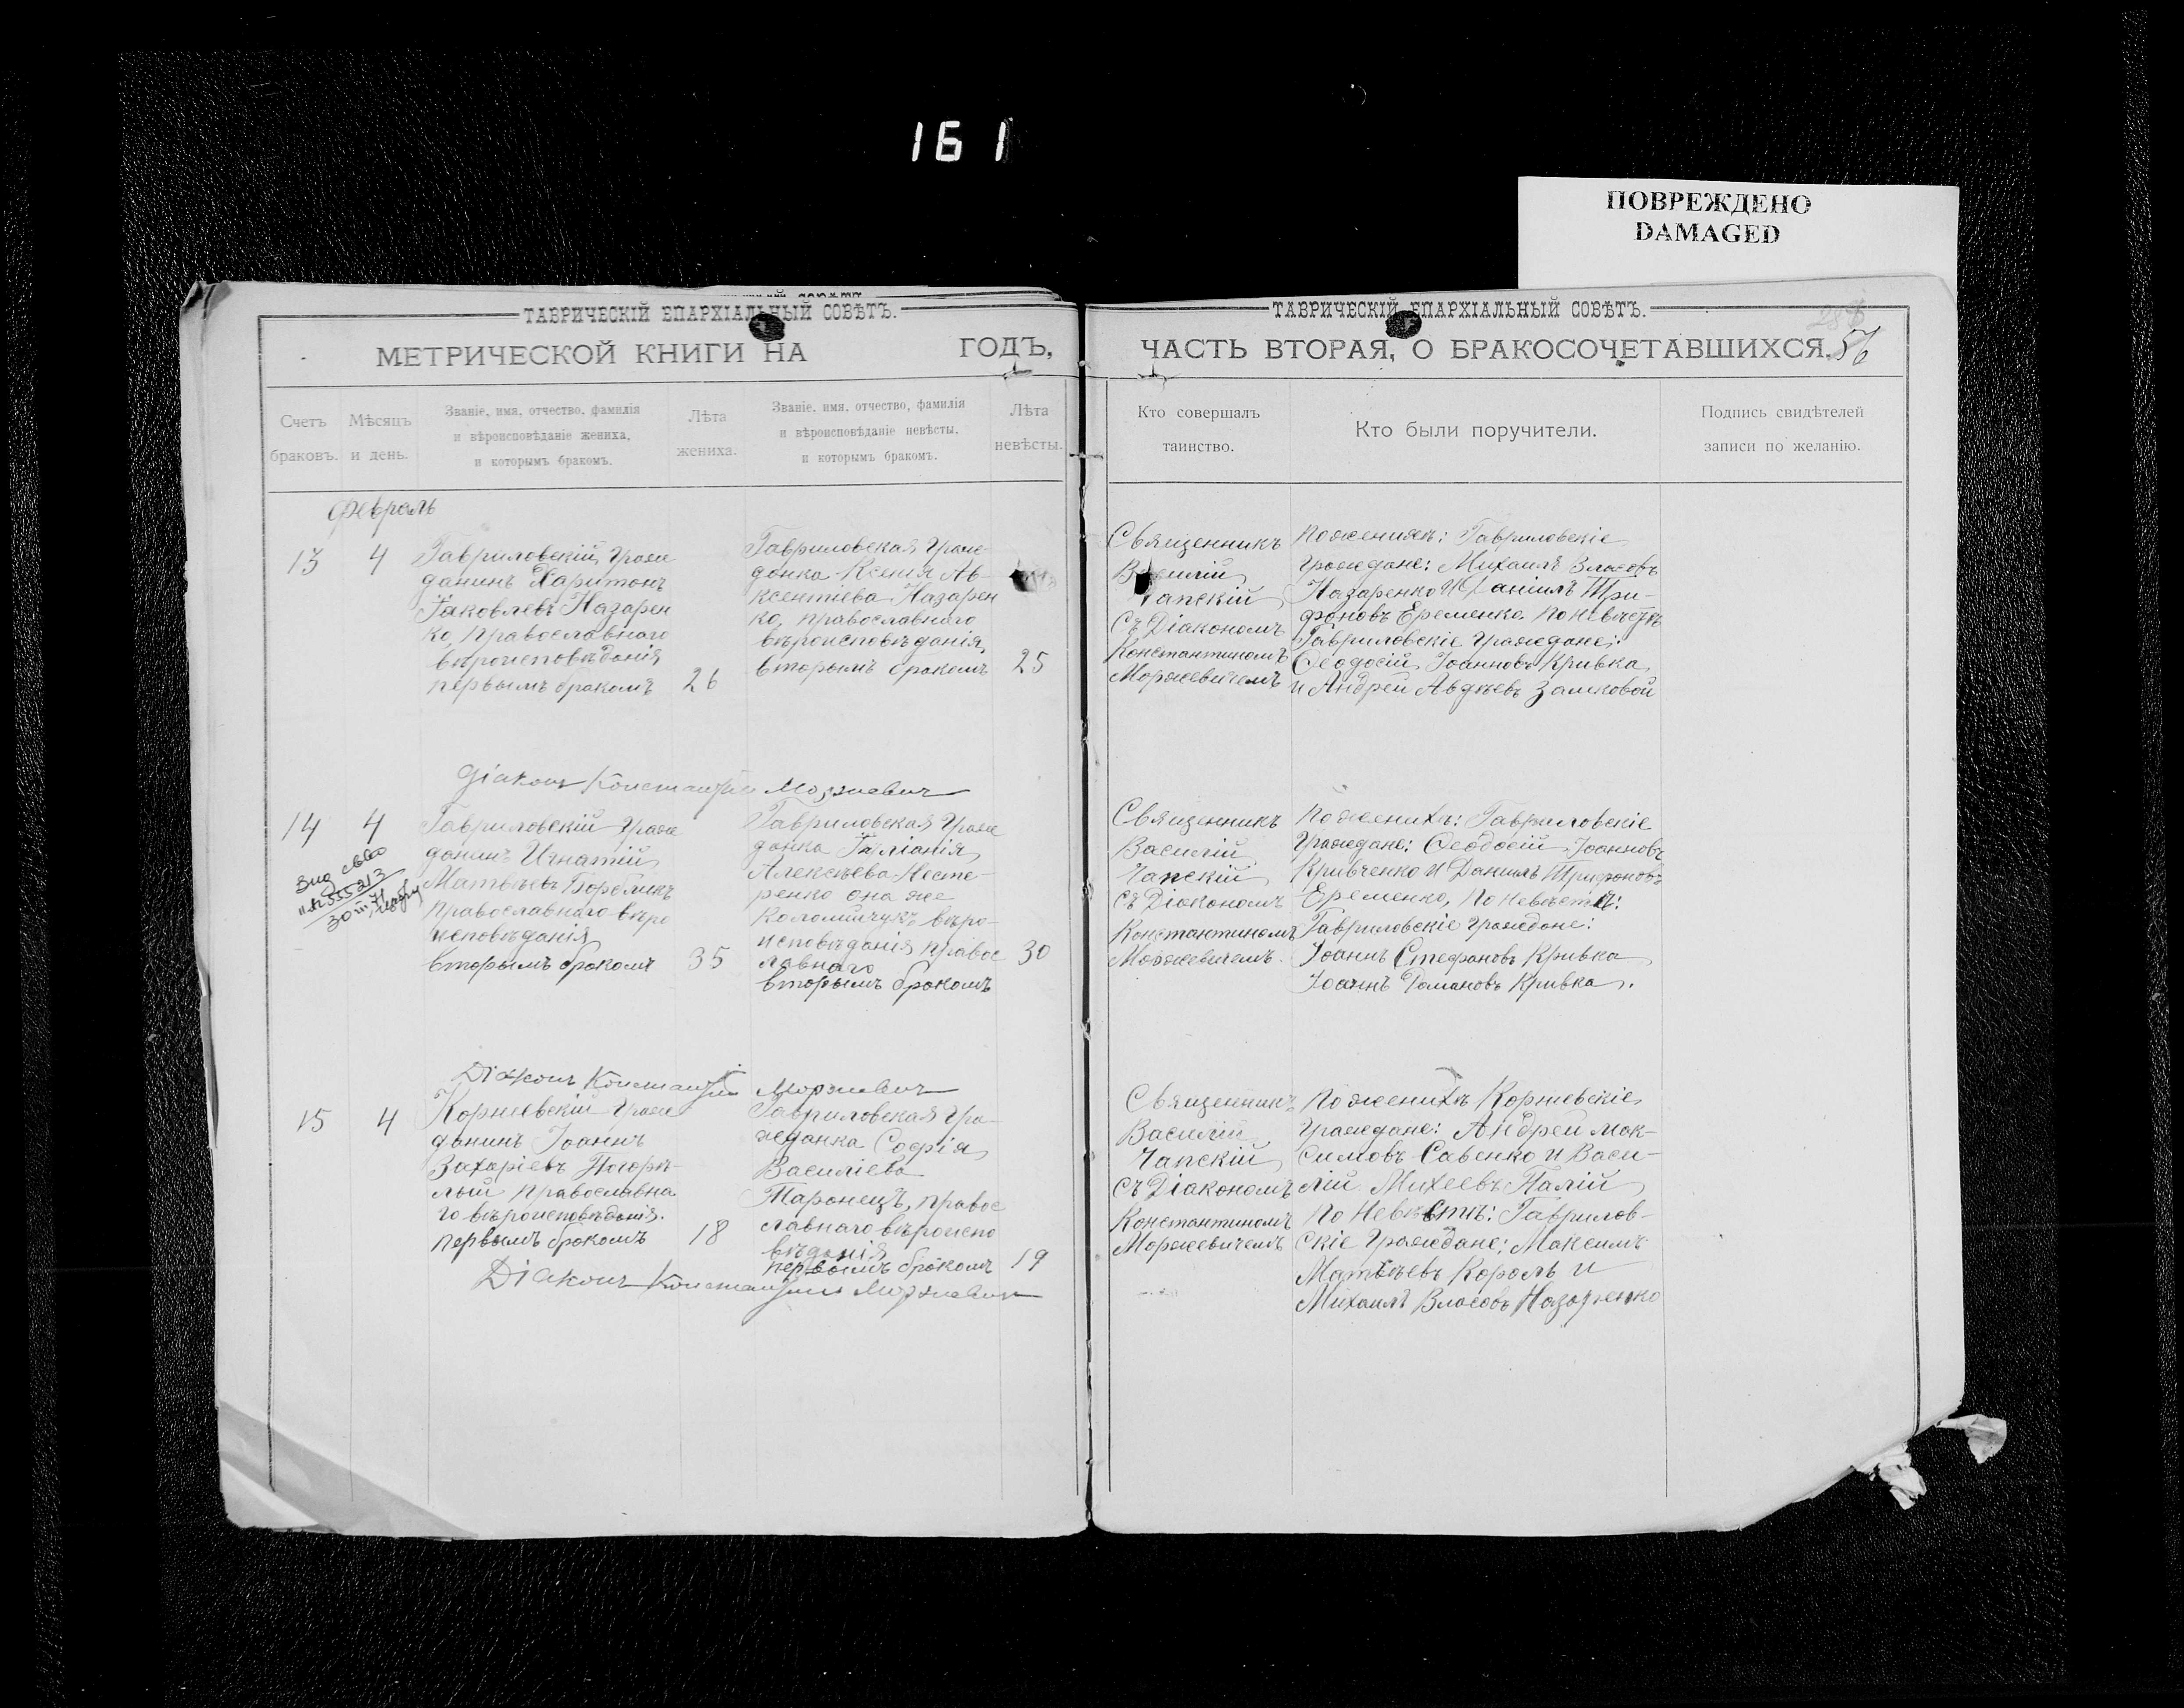 161
ПОВРЕЖДЕНО
DAMAGED
ТАВРИЧЕСКІЙ ЕПАРХІАЛЬНЫЙ СОВѢТЪ.
МЕТРИЧЕСКОЙ КНИГИ НА ГОДЪ,
Счетъ браковъ.
Мѣсяцъ и день.
Званіе, имя, отчество, фамилія
и вѣроисповѣданіе жениха,
и которымъ бракомъ.
Лѣта жениха.
Званіе, имя, отчество, фамилія
и вѣроисповѣданіе невѣсты,
и которымъ бракомъ.
Лѣта невѣсты.
Февраль
13
4
Гавриловскій граж
данинъ Харитонъ
Іаковлевъ Назарен
ко, православнаго
вѣроисповѣданія
первымъ бракомъ
26
Гавриловская граж-
данка Ксенія Ав-
ксентіева Назарен
ко, православнаго
вѣроисповѣданія,
вторымъ бракомъ
25
Діаконъ Константинъ Моржевич
14
4
Гавриловскій граж
данинъ Игнатій
Матвѣевъ
православнаго вѣро
исповѣданія
вторымъ бракомъ
35
Гавриловская граж
данка Іуліанія
Алексѣева Несте-
ренко она же
Коломийчукъ вѣро-
исповѣданія правос
лавнаго
вторымъ бракомъ
30
Діаконъ Константинъ Моржевич
15
4
Корнѣевскій граж
данинъ Іоаннъ
Захаріевъ Погорѣ-
лый православна
го вѣроисповѣданія.
первымъ бракомъ
18
Гавриловская гра-
жданка Софія
Василіева
Таранецъ, правос
лавнаго вѣроиспо
вѣданія
первымъ бракомъ
19
Діаконъ Константинъ Моржевич
ТАВРИЧЕСКІЙ ЕПАРХІАЛЬНЫЙ СОВѢТЪ.
ЧАСТЬ ВТОРАЯ, О БРАКОСОЧЕТАВШИХСЯ.
56
Кто совершалъ
таинство.
Кто были поручители.
Подпись свидѣтелей
записи по желанію.
Священникъ
Василій
Чапскій
съ Діакономъ
Константиномъ
Моржевичемъ
По женихѣ: Гавриловскіе
граждане: Михаилъ Власовъ
Назаренко и Даніилъ Три-
фоновъ Еременко. По невѣстѣ
Гавриловскіе граждане:
Ѳеодосій Іоанновъ Кривка
и Андрей Авдѣевъ Замковой
Священникъ
Василій
Чапскій
съ Діакономъ
Константиномъ
Моржевичемъ.
По женихѣ: Гавриловскіе
граждане: Ѳеодосій Іоанновъ
Кривченко и Даніилъ Трифоновъ
Еременко, По невѣстѣ:
Гавриловскіе граждане:
Іоаннъ Стефановъ Кривка
Іоаннъ Романовъ Кривка.
Священникъ
Василій
Чапскій
съ Діакономъ
Константиномъ
Моржевичемъ
По женихѣ Корнѣевскіе
граждане: Андрей Мак-
симовъ Савенко и Васи-
лій Михеевъ Палій
По Невѣстѣ: Гаврилов-
скіе граждане: Максимъ
Матвѣевъ Король и
Михаилъ Власовъ Назаренко